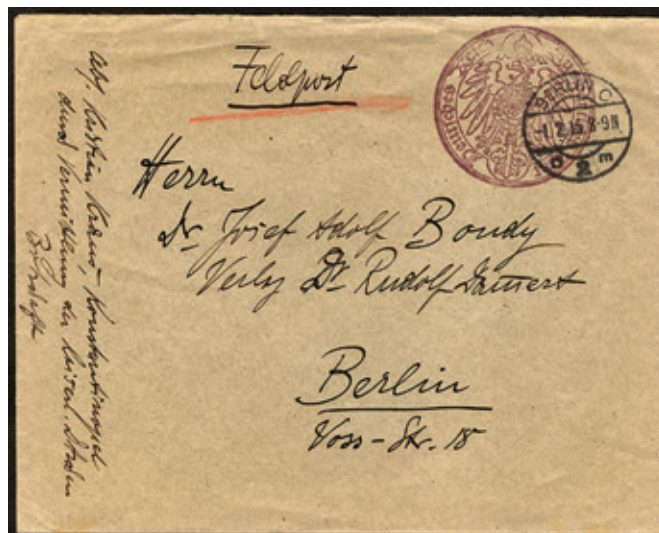 Feldpost
BERLIN C
-1.2.15.8-9N
2 m
Herrn
Dr. Josef Adolf Bondy
Verlag Dr. Rudolf Dammert
Berlin
Voss-Str. 18
Konstantinopel
durch Vermittlung der Kaiserl.
Botschaft